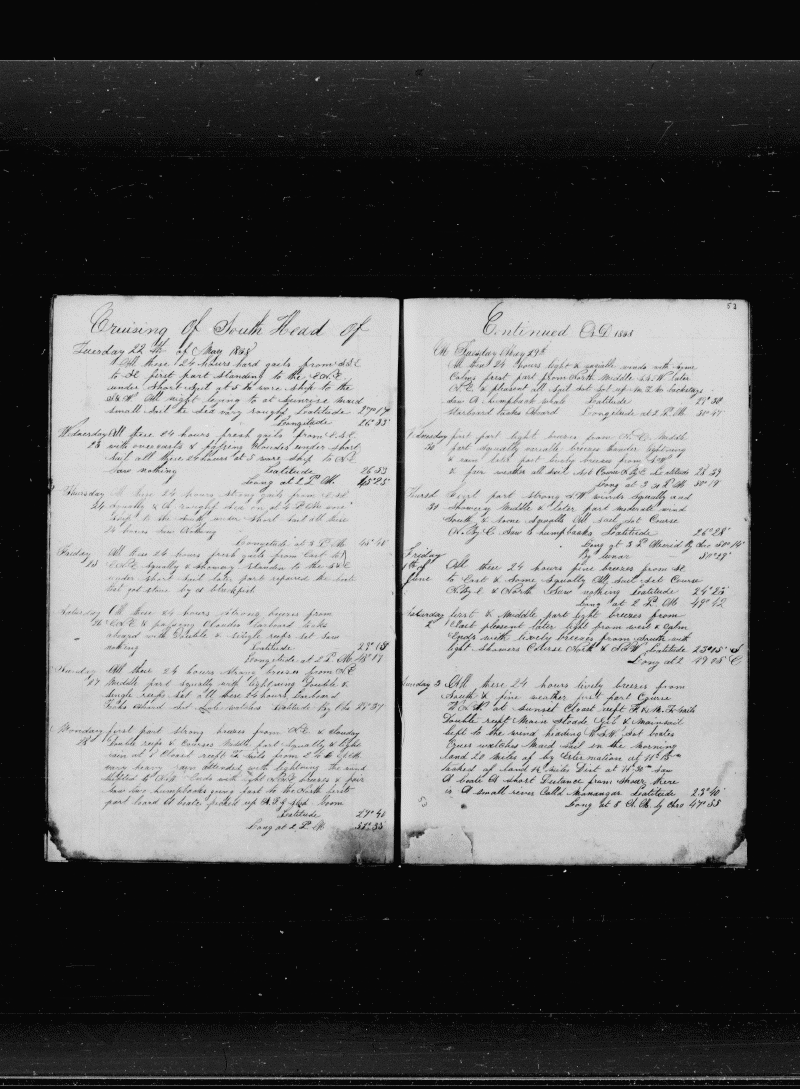 Cruising of South Head of
Tuesday 22 th of May 1888
All these 24 hours hard gaels from S.E
to SE first part standing to the E.N.E
under Short Sail at 5 h wore Ship to the
S&W All night leying to at Sunrise Maid
small Sail the Sea very rough Latitude 27°17
Longitude 26°33'
Wednesday All these 24 hours fresh gails from E.S.E
23 with overcasts & passing Cloudes under short
Sail all these 24 hours at 5 wore Ship to N.E
Saw nothing Latitude 26 53
Long at 2 P.M 45°25'
Thursday All these 24 hours strong gaels from
24 squally &
Ship to the South under Short Sail all these
24 hours saw Nothing
Longitude at 3 P.M 45°48
Friday All these 24 hours fresh gaels from East to
25 E.N.E Squally & Showery standen to the S&E
under short Sail later part repared the boat
that got stove by a blackfish
Saturday All these 24 hours strong breeses from
26 E.N.E & passing Cloudes Larboard tacks
aboard with Double & single reefs set Saw
nothing Latitude 27° 18
Longitude at 2 P.M 48°17
Sunday All these 24 hours Strong breeses from N.E
27 Middle part Squally with lightning Double &
Single reefs Set all these 24 hours Larboard
Tacks aboard Latitude By Obs 27°37
Monday first part strong breeses from N.E & Cloudy
28th Double reefs & Courses Middle part Squally & light
rain at 1 Closet reeft to Sails from 2 to 4 oClock
very heavy rain attended with lightning the wind
shifted to N.W Ends with light N.N.E breeses & fair
Saw two humpbacks going fast to the North first
part lowd 2 boats picked up boom
Latitude 27°40
Long at 2 P.M 50°33
53
Continued A.D 1888
On Tuesday May 29th
All these 24 hours light & variable winds with some
Calms first part from North Middle S&W Later
N.E & pleasent all Sail Set
Saw A humpback whale Latitude 27°38
Starboard tacks Aboard Longitude at 2 P.M 50°47
Wednesday first part light breeses from N. E. Middle
30 part Squally variable breeses thunder lightning
& rain later part lively breeses from S&W
& fair weather all Sail Set Course N.B.E Latitude 28 59
Long at 3 P.M 50°19
Thursd First part strong S.W winds Squally and
31 Showery Middle & later part moderate wind
South & some Squalls All Sail Set Course
N.B.E Saw 2 humpbacks Latitude 26°28'
Long at 3 P.M by Chro 50°14'
By Lunar 50°29'
Friday All these 24 hours fine breeses from SE
1th of to East & Some Squally All Sail Set Course
June N.by.E & North Saw nothing Latitude 24°25
Long at 2 P.M 49°42
Saturday first & Middle part light breeses from
2 East pleasent later light from west & Calm
Ends with lively breeses from South with
light Showers Course North & N.N.W Latitude 23°15' S
Long at 2 49 05 E
Sunday 3 All these 24 hours lively breeses from
South & fine weather first part Course
N.N.W at Sunset Closet reeft F. & M. T. Sails
Double reeft Main Stade Jib & Mainsail
kept to the wind heading W&W Set boates
Crues watches Maid Sail in the Morning
land 20 Miles of by Estermation at 11 h 15 m
tacked of land 12 Miles Dist at 11 h 30 m Saw
A boate A short Distance from Shoar there
is A small river Calld Manangar Latitude 23°40'
Long at 8 A.M by Chro 47°55